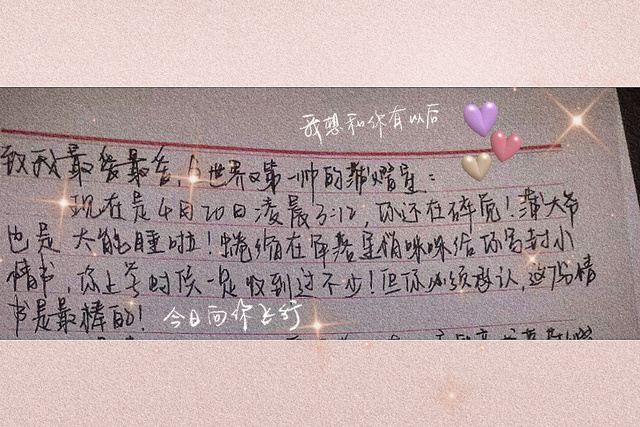 我想和你有以后
致我最爱最爱,世界第一帅的熠星:
现在是4月20日凌晨3:12,你还在碎觉!大爷
也是太能睡啦!蜷缩在宿舍里悄咪咪给你写封小
情书,你上学时候一定收到过不少!但你必须承认,这封情
书是最棒的!
今日向你飞行